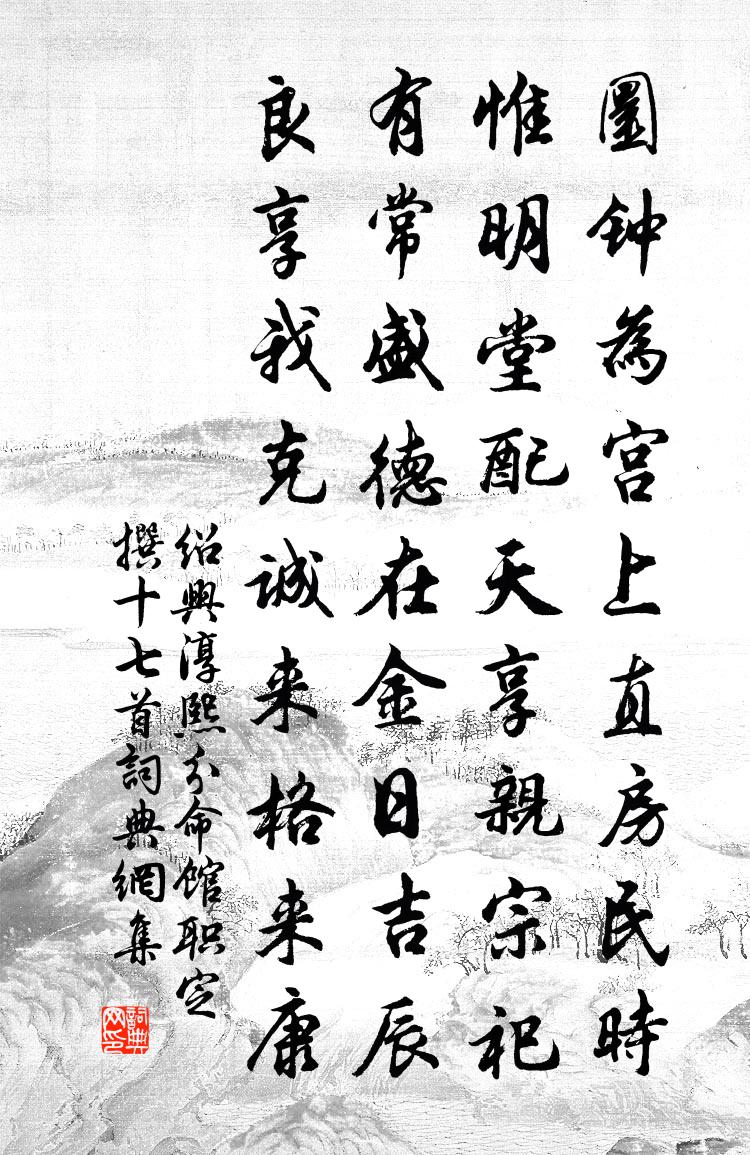 圜钟為宫上直房民時
惟明堂配天享親宗祀
有常盛德在金日吉辰
良享我克诚来格来康
绍興淳熙分命馆职定
撰十七首詞典網集
詞典
网印